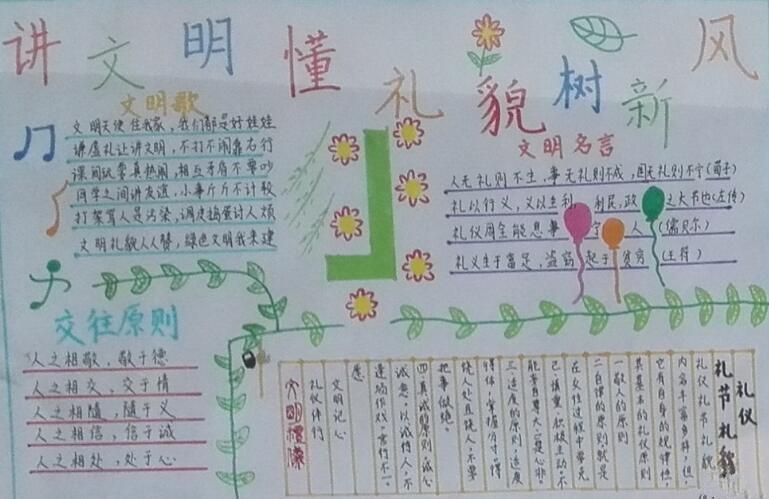 讲文明懂礼貌树新风
文明歌
文明天使住我家，我们都是好娃娃
谦虚礼让讲文明，不打不闹靠右行
课间玩耍真热闹，相互矛盾不要吵
同学之间讲友谊，小事斤斤不计较
打架骂人是污染，调皮捣蛋讨人烦
文明礼貌人人赞，绿色文明我来建
文明名言
人无礼则不生，事无礼则不成，国无礼则不宁(荀子)
礼以行义，义以生利，利民，政之大节也(左传)
礼仪周全能息事宁人(儒贝尔)
礼义生于富足，盗窃起于贫穷(王符)
交往原则
人之相敬，敬于德
人之相交，交于情
人之相随，随于义
人之相信，信于诚
人之相处，处于心
礼仪
礼节礼貌
礼仪礼节礼貌
内容丰富多样，但
它有自身的规律性，
其基本的礼仪原则
一敬人的原则
二自律的原则就是
在交往过程中要克
己、慎重、积极主动、不
能妄自尊大、口是心非。
三适度的原则，适度
得体，掌握分寸，得
饶人处且饶人，不要
把事做绝。
四真诚的原则诚心
诚意，以诚待人，不
逢场作戏，言行不一。
愿
文明记心
礼仪伴行
文明礼仪